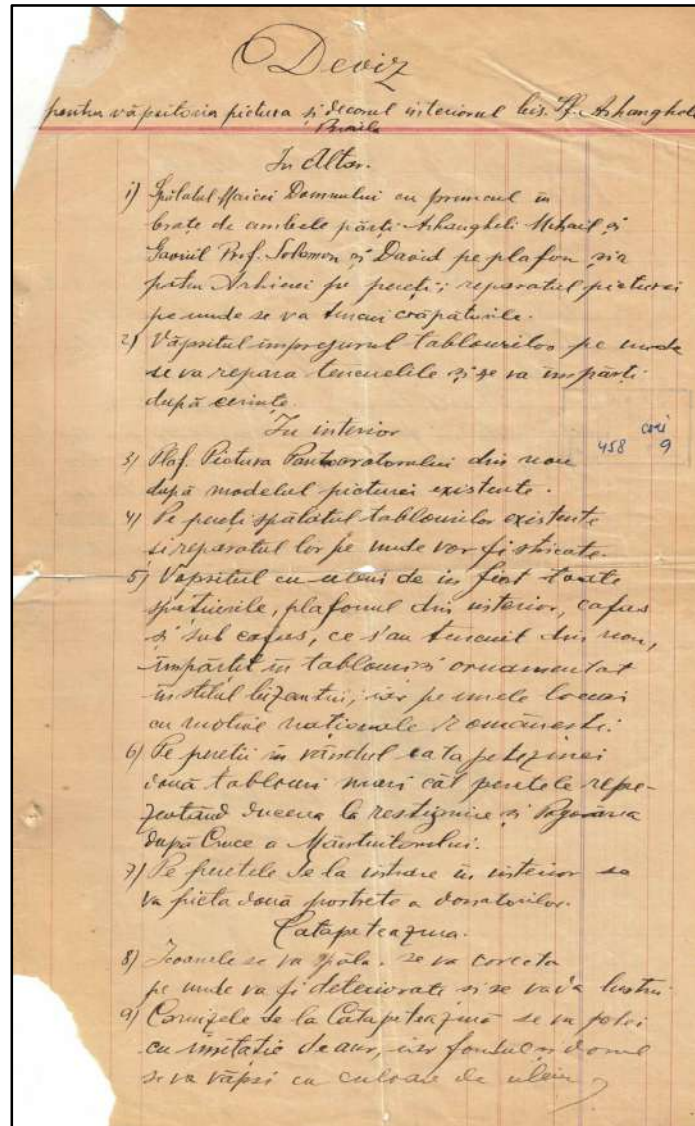 Deviz
pentru văpsitoria pictura și decorul interiorul bis. Sf. Arhangheli
Braila
In Altar.
1) Spălatul Maicei Domnului cu pruncul în
brațe de ambele părți Arhangheli Mihail și
Gavriil Prof. Solomon și David pe plafon și a
patru Arhierei pe pereți; reparatul picturei
pe unde se va tencui crăpăturile.
2) Văpsitul împrejurul tablourilor pe unde
se va repara tencuelile și se va împărți
după cerințe.
In interior
458 9
3) Plaf. Pictura Pantocratorului din nou
după modelul picturei existente.
4) Pe pereți spălatul tablourilor existente
si reparatul lor pe unde vor fi stricate.
5) Vapsitul cu uleiu de in fiert toate
spațiurile, plafonul din interior, cafas
si sub cafas, ce s'au tencuit din nou,
împărțit in tablouri si ornamentat
in stilul bizantin, iar pe unele locuri
cu motive naționale Românești.
6) Pe pereții in rândul catapetezmei
două tablouri mari cât peretele repe-
zentând ducerea la restignire si Pogorârea
după Cruce a Mântuitorului.
7) Pe peretele de la intrare in interior se
va picta două portrete a donatorilor.
Catapeteazma.
8) Icoanele se va spăla, se va corecta
pe unde va fi deteriorate si se va lustrui
9) Cornizele de la Catapeteazmă se va polei
cu imitatie de aur, iar fondul
se va văpsi cu culoare de uleiu